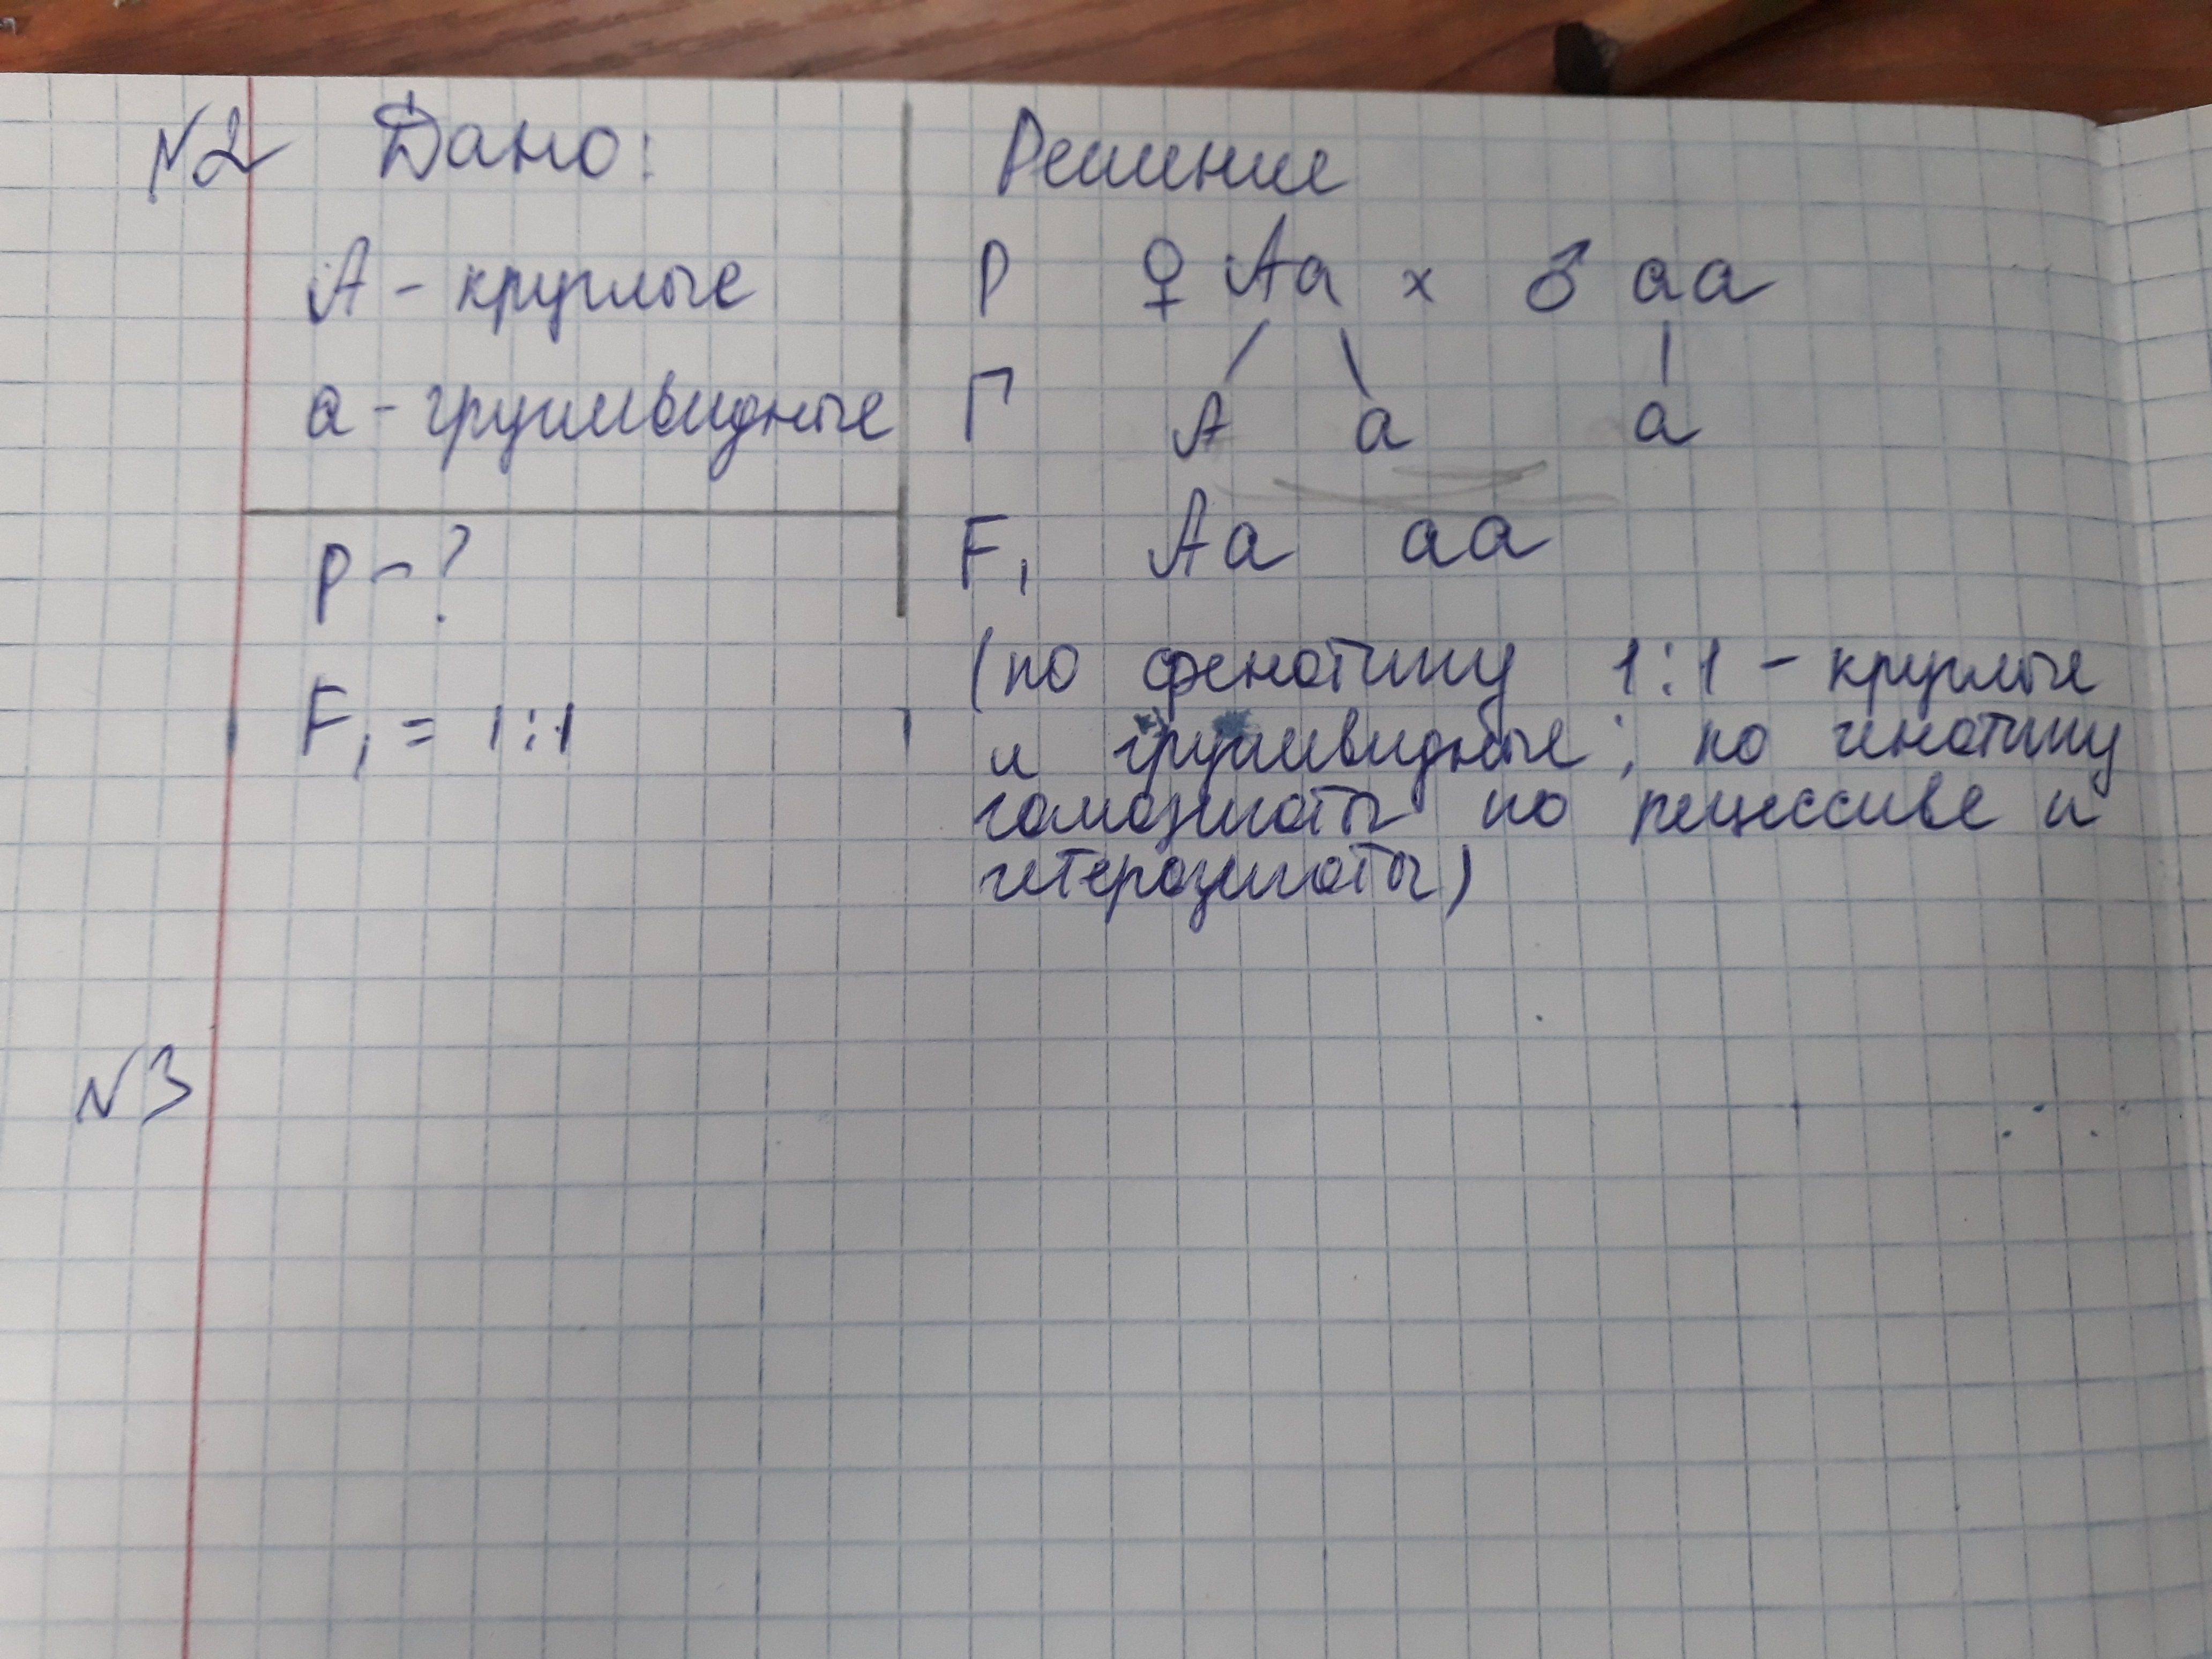 №2 Дано:
А - круглые
а - грушевидные
P - ?
F₁ = 1:1
Решение
P ♀ Аа × ♂ аа
Г А а а
F₁ Аа аа
(по фенотипу 1:1 - круглые
и грушевидные; по генотипу
гомозиготы по рецессиве и
гетерозиготы)
№3